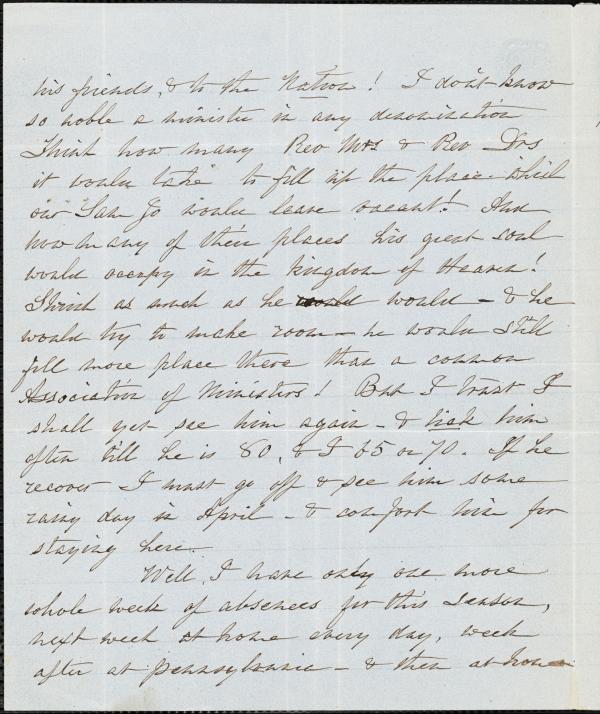 his friends, & to the Nation! I don't know
so noble a minister in any denomination
Think how many Rev Mrs & Rev Drs
it would take to fill up the place which
our Sam Jo would leave vacant! And
how many of their places his great soul
would occupy in the kingdom of Heaven!
Think as much as he would would – & he
would try to make room – he would still
fill more place there than a common
Association of Ministers! But I trust I
shall yet see him again – & him
often till he is 80, & I 65 or 70. If he
recover I must go off & see him some
rainy day in April – & comfort him for
staying here.
Well, I have only one more
whole week of absences for this season,
next week at home every day, week
after at Pennsylvania – & then at home